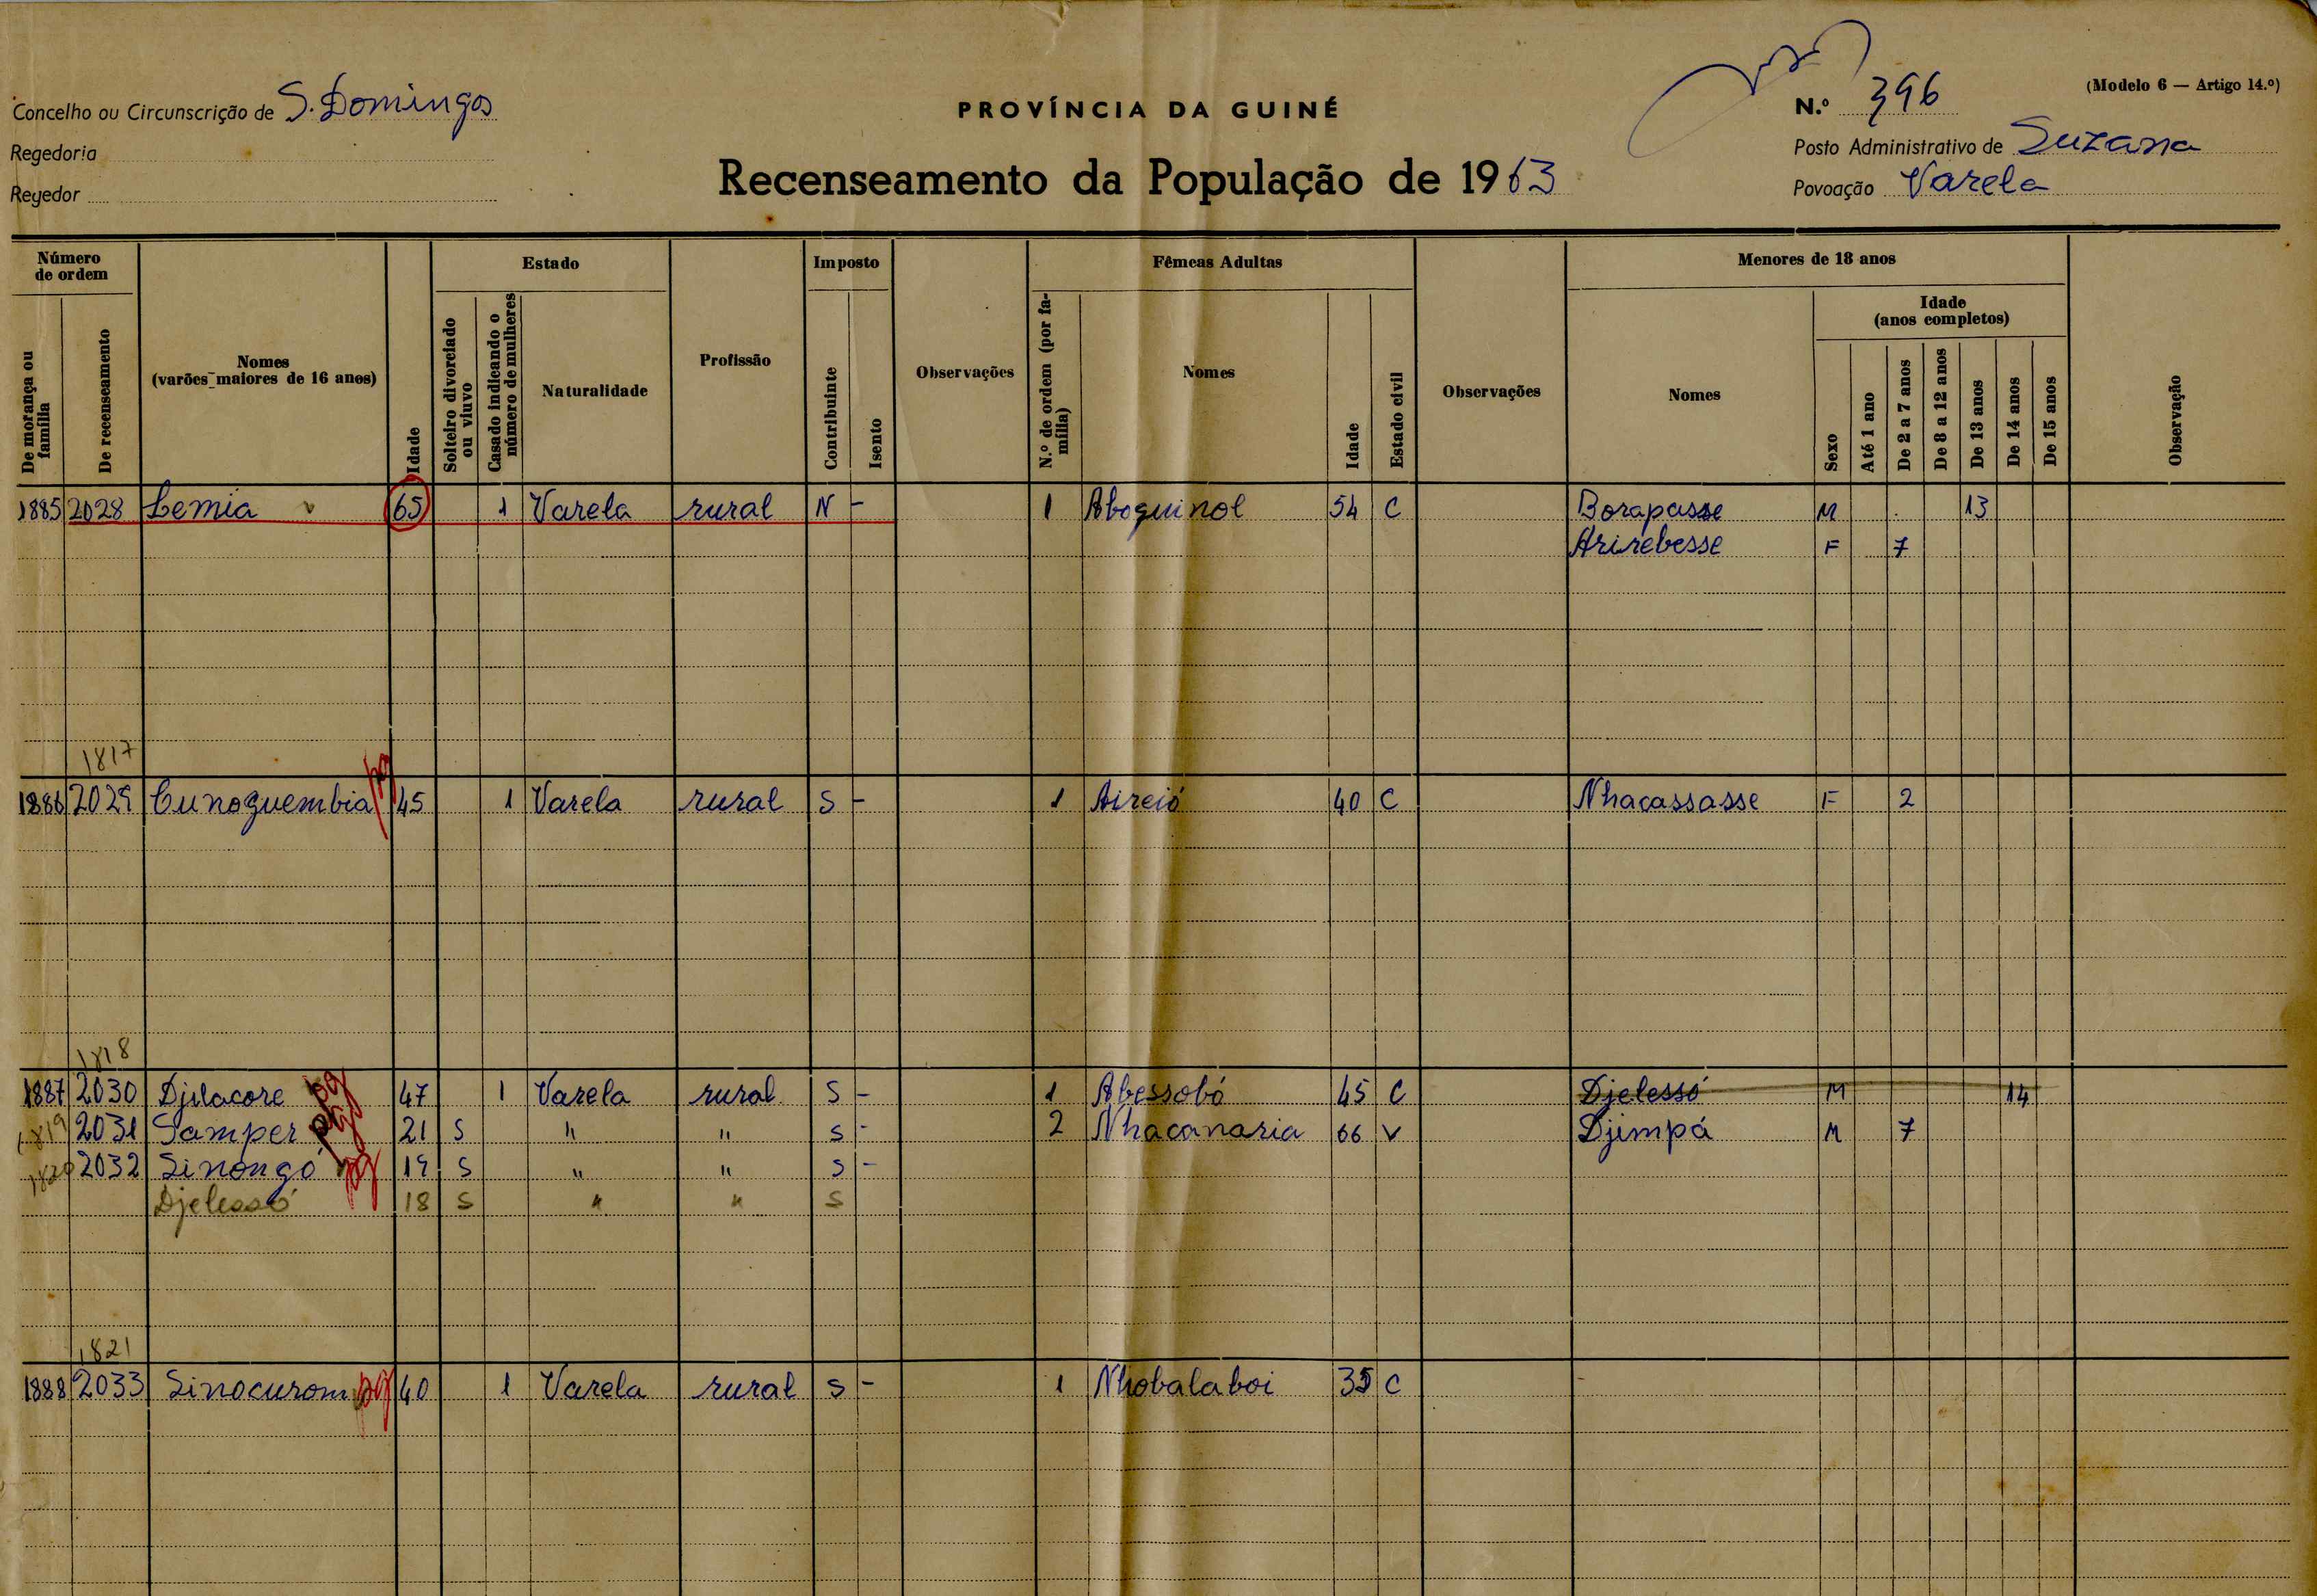 Concelho ou Circunscrição de S. Domingos
Regedoria
Regedor
PROVÍNCIA DA GUINÉ
Recenseamento da População de 1963
(Modelo 6 — Artigo 14.º)
N.º 396
Posto Administrativo de Suzana
Povoação Varela
Número de ordem
De morança ou família
De recenseamento
Nomes (varões maiores de 16 anos)
Idade
Estado
Solteiro divorciado ou viuvo
Casado indicando o número de mulheres
Naturalidade
Profissão
Imposto
Contribuinte
Isento
Observações
Fêmeas Adultas
N.º de ordem (por família)
Nomes
Idade
Estado civil
Observações
Menores de 18 anos
Nomes
Sexo
Idade (anos completos)
Até 1 ano
De 2 a 7 anos
De 8 a 12 anos
De 13 anos
De 14 anos
De 15 anos
Observação
1885 2028 Lemia 65 1 Varela rural N - 1 Aboquinol 54 C Borapasse M 13
Arirebesse F 7
1817
1886 2029 Cunoguembia pg 45 1 Varela rural S - 1 Aireió 40 C Nhacassasse F 2
1818
1887 2030 Djilacore pg 47 1 Varela rural S - 1 Abessobó 45 C Djelessó M 14
1819 2031 Samper pg 21 S " " S - 2 Nhacanaria 66 V Djimpá M 7
1820 2032 Sinongó pg 19 S " " S -
Djelessó 18 S " " S
1821
1888 2033 Sinocurom pg 40 1 Varela rural S - 1 Nhobalaboi 35 C